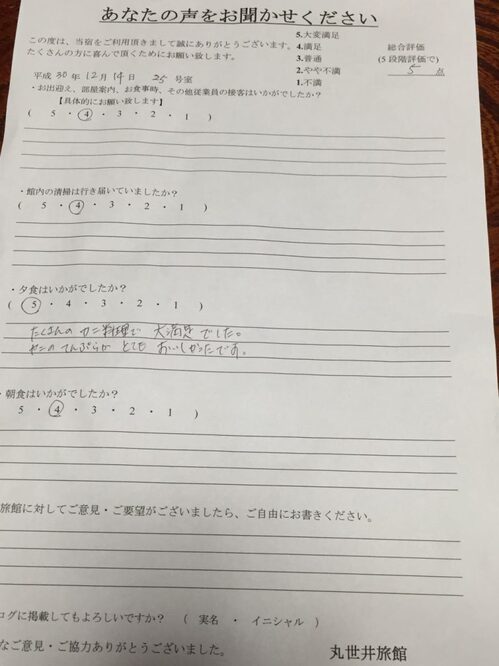 あなたの声をお聞かせください
この度は、当宿をご利用頂きまして誠にありがとうございます。
たくさんの方に喜んで頂くためにお願い致します。
5.大変満足
4.満足
3.普通
2.やや不満
1.不満
総合評価
(5段階評価で)
5 点
平成 30 年 12 月 14 日 25 号室
・お出迎え、部屋案内、お食事時、その他従業員の接客はいかがでしたか?
【具体的にお願い致します】
( 5 ・ 4 ・ 3 ・ 2 ・ 1 )
・館内の清掃は行き届いていましたか?
( 5 ・ 4 ・ 3 ・ 2 ・ 1 )
・夕食はいかがでしたか?
( 5 ・ 4 ・ 3 ・ 2 ・ 1 )
たくさんのカニ料理で 大満足 でした。
カニのてんぷらが とても おいしかったです。
・朝食はいかがでしたか?
5 ・ 4 ・ 3 ・ 2 ・ 1 )
旅館に対してご意見・ご要望がございましたら、ご自由にお書きください。
ログに掲載してもよろしいですか? ( 実名 ・ イニシャル )
なご意見・ご協力ありがとうございました。
丸世井旅館